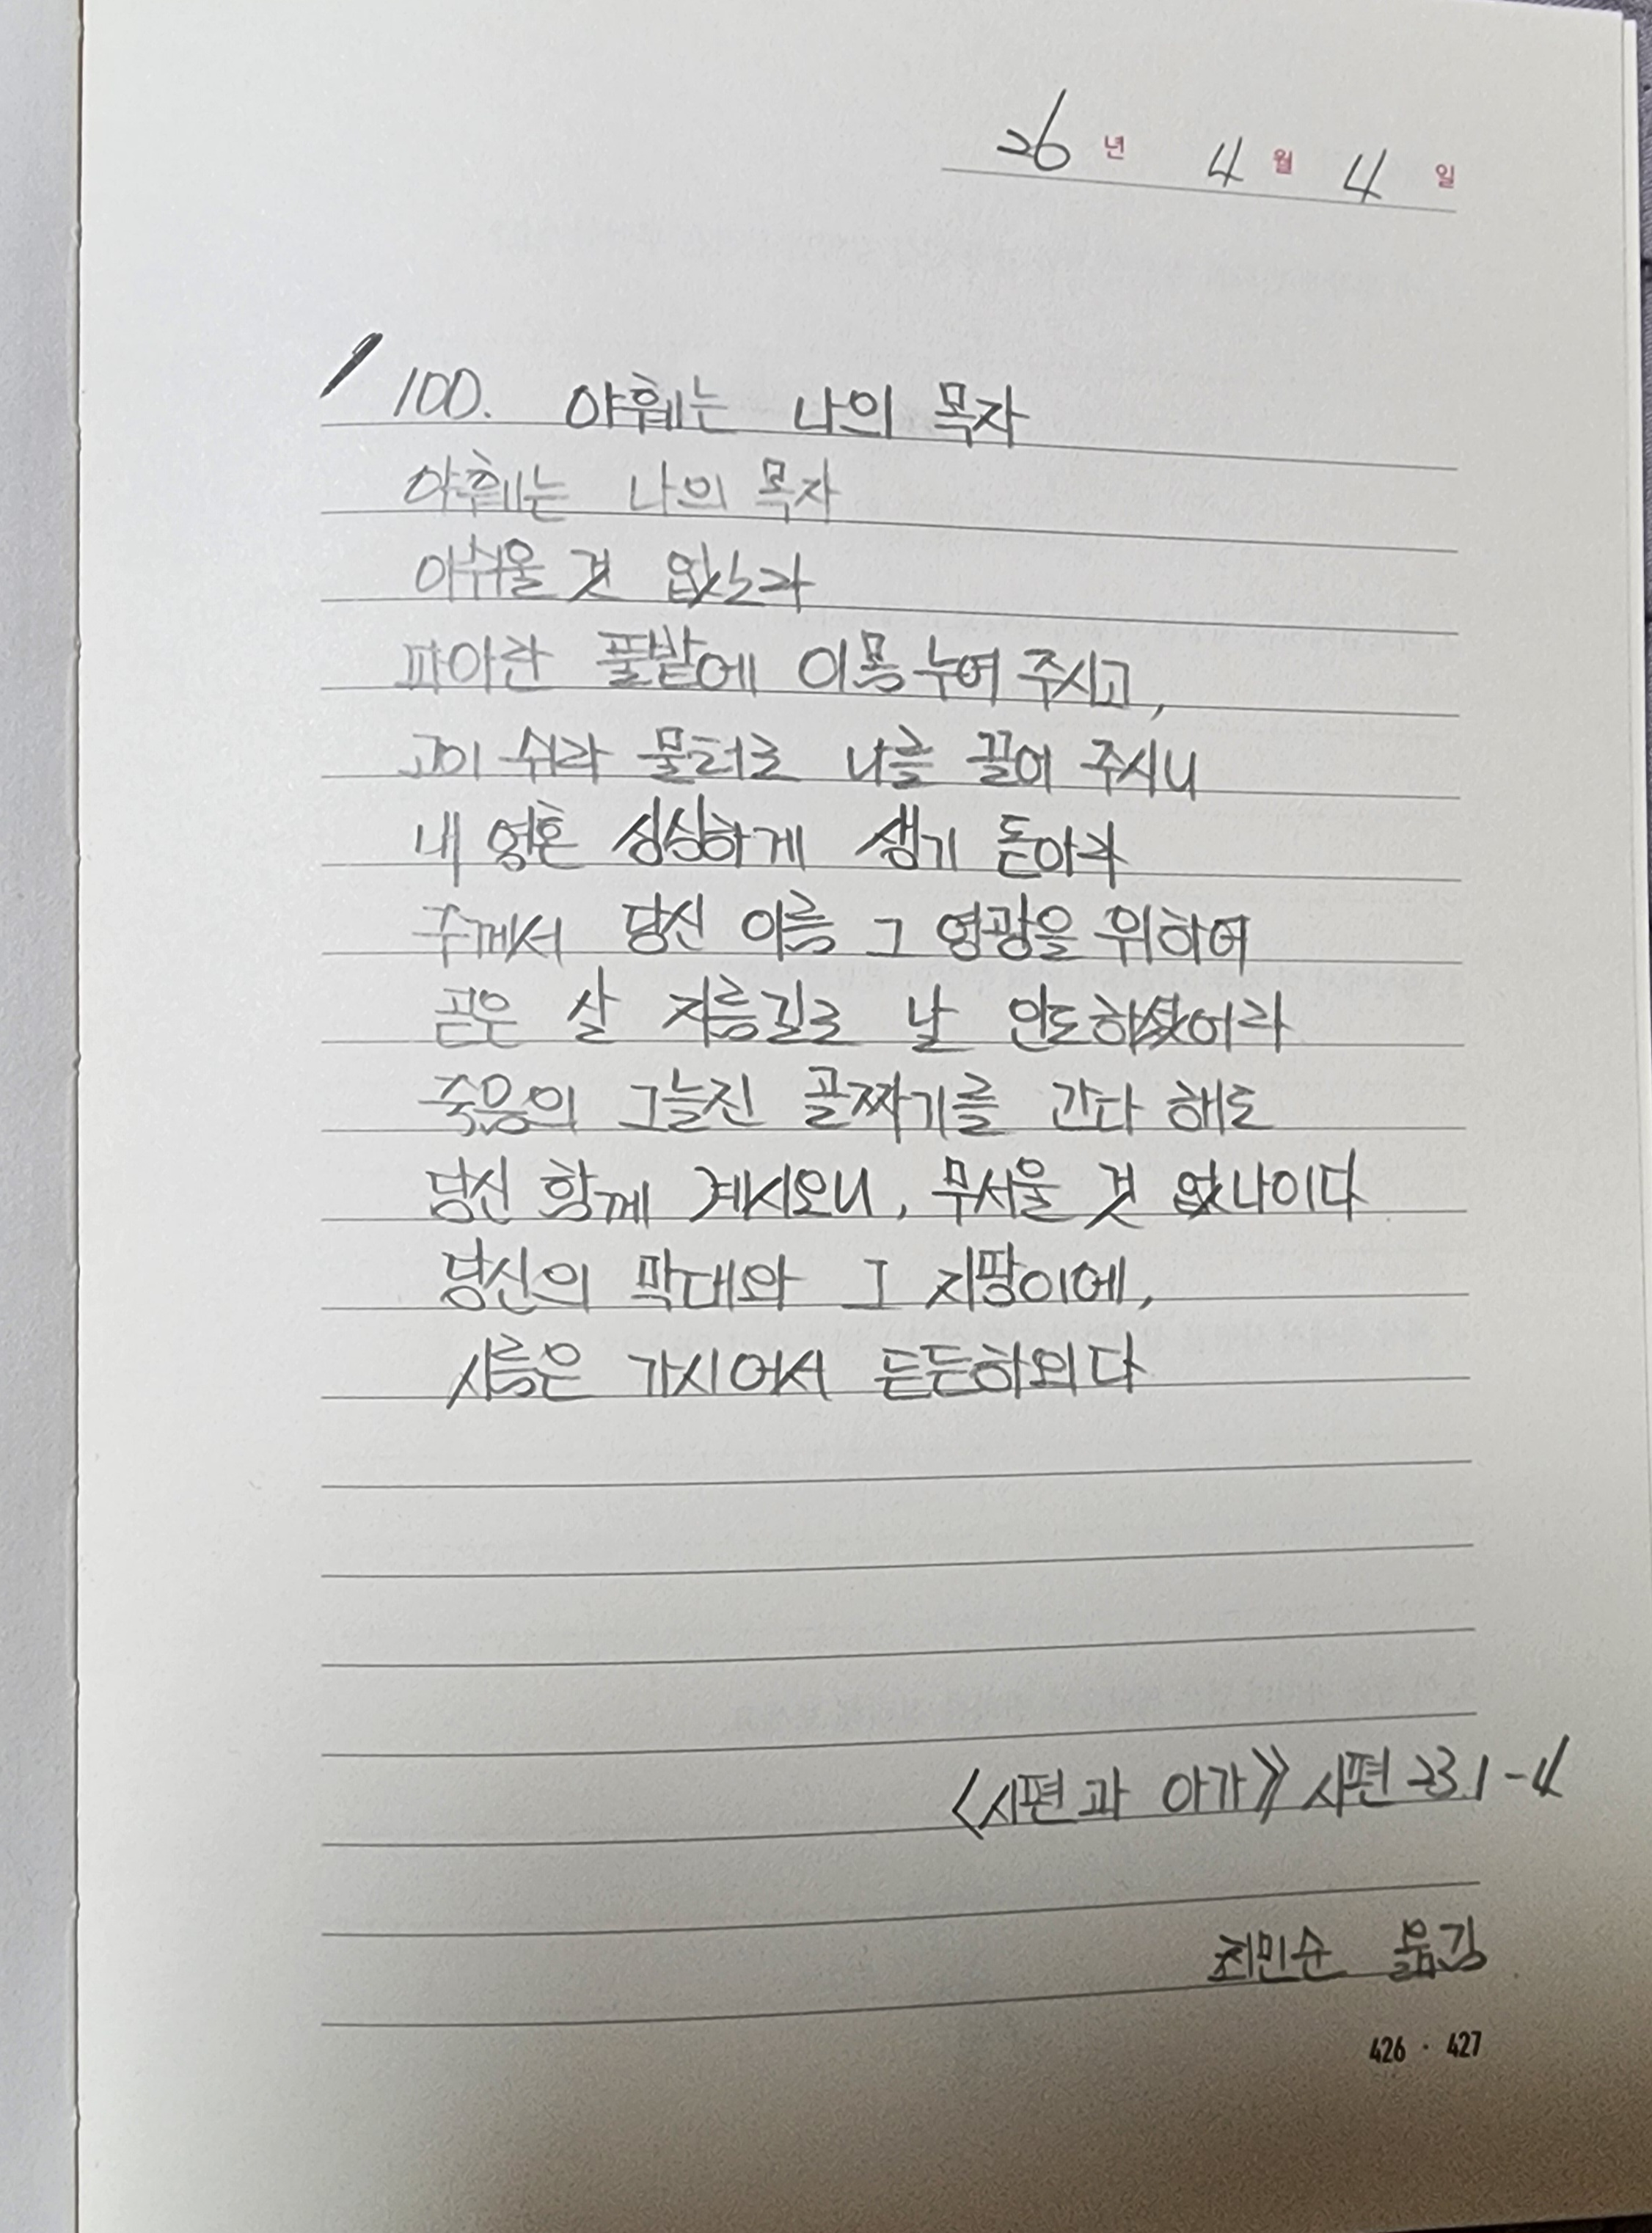 26년 4월 4일
100. 야훼는 나의 목자
야훼는 나의 목자
아쉬울 것 없노라
파아란 풀밭에 이 몸 누여 주시고,
고이 쉬라 물터로 나를 끌어 주시니
내 영혼 싱싱하게 생기 돋아라
주께서 당신 이름 그 영광을 위하여
곧은 살 지름길로 날 인도하셨어라
죽음의 그늘진 골짜기를 간다 해도
당신 함께 계시오니, 무서울 것 없나이다
당신의 막대와 그 지팡이에,
시름은 가시어서 든든하외다
〈시편과 아가》 시편 23.1-4
최민순 옮김
426 · 427